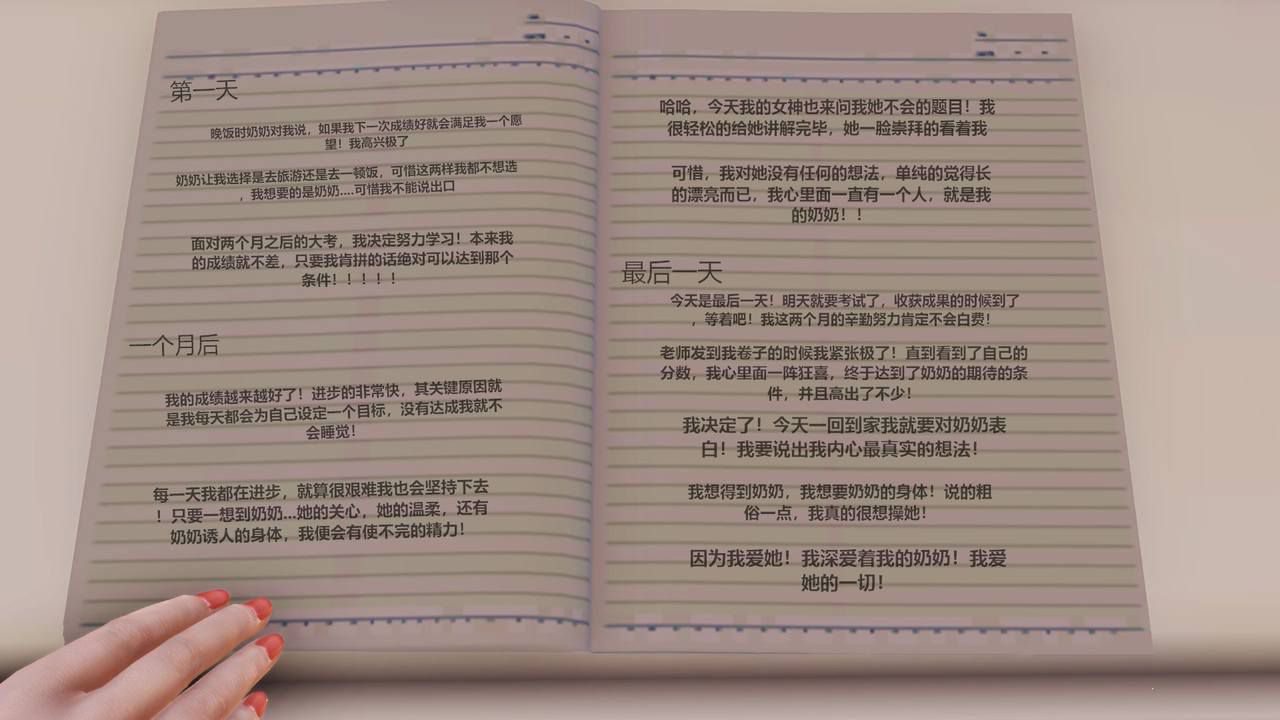 第一天
晚饭时奶奶对我说，如果我下一次成绩好就会满足我一个愿
望！我高兴极了
奶奶让我选择是去旅游还是去一顿饭，可惜这两样我都不想选
，我想要的是奶奶....可惜我不能说出口
面对两个月之后的大考，我决定努力学习！本来我
的成绩就不差，只要我肯拼的话绝对可以达到那个
条件！！！！！
一个月后
我的成绩越来越好了！进步的非常快，其关键原因就
是我每天都会为自己设定一个目标，没有达成我就不
会睡觉！
每一天我都在进步，就算很艰难我也会坚持下去
！只要一想到奶奶...她的关心，她的温柔，还有
奶奶诱人的身体，我便会有使不完的精力！
哈哈，今天我的女神也来问我她不会的题目！我
很轻松的给她讲解完毕，她一脸崇拜的看着我
可惜，我对她没有任何的想法，单纯的觉得长
的漂亮而已，我心里面一直有一个人，就是我
的奶奶！！
最后一天
今天是最后一天！明天就要考试了，收获成果的时候到了
，等着吧！我这两个月的辛勤努力肯定不会白费！
老师发到我卷子的时候我紧张极了！直到看到了自己的
分数，我心里面一阵狂喜，终于达到了奶奶的期待的条
件，并且高出了不少！
我决定了！今天一回到家我就要对奶奶表
白！我要说出我内心最真实的想法！
我想得到奶奶，我想要奶奶的身体！说的粗
俗一点，我真的很想操她！
因为我爱她！我深爱着我的奶奶！我爱
她的一切！